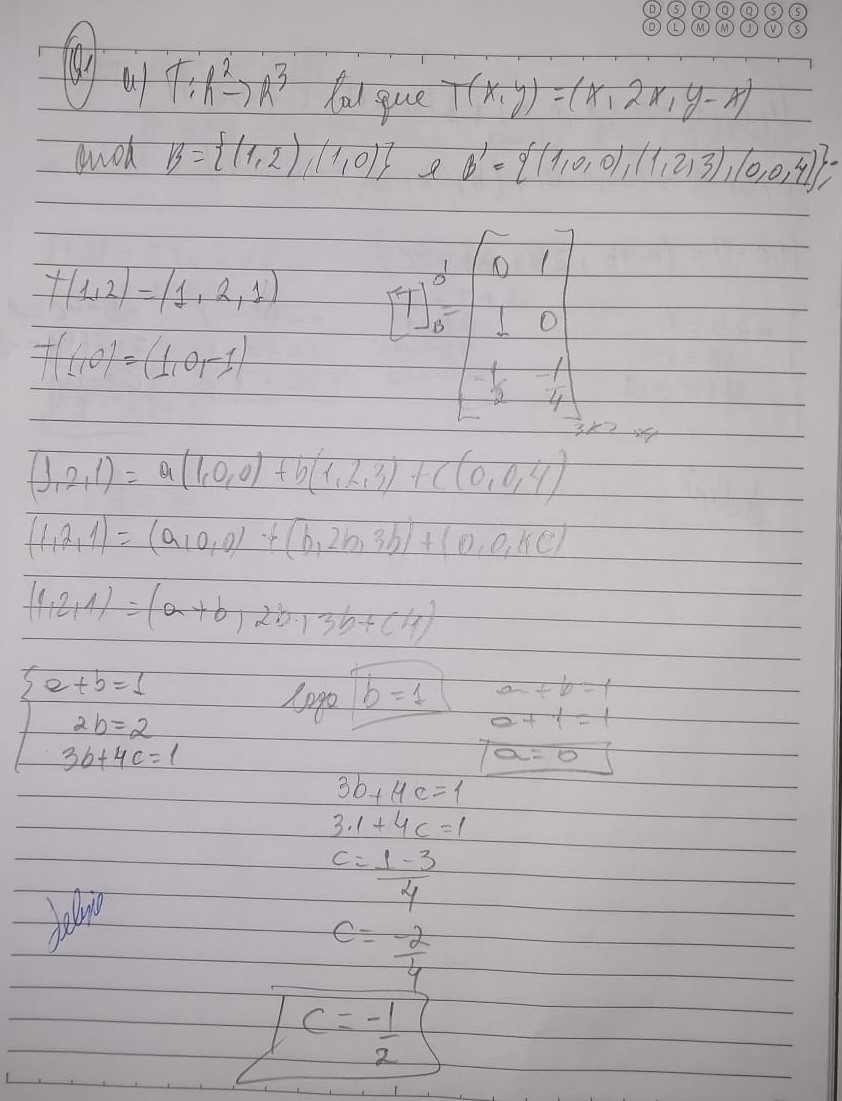 D S T Q Q S S
D L M M J V S
Q1 a) T: R² → R³ tal que T(x,y) = (x, 2x, y-x)
B = {(1,2),(1,0)} e B' = {(1,0,0),(1,2,3),(0,0,4)};
T(1,2) = (1,2,1)
T(1,0) = (1,0,-1)
[T]_B^B' = [0 1
1 0
-1/2 -1/4]
3x2
(1,2,1) = a(1,0,0) + b(1,2,3) + c(0,0,4)
(1,2,1) = (a,0,0) + (b,2b,3b) + (0,0,4C)
(1,2,1) = (a+b, 2b, 3b+C4)
{a+b=1
2b=2
3b+4c=1
logo b=1
a+b=1
a+1=1
a=0
3b+4c=1
3.1+4c=1
C=1-3/4
C=-2/4
C=-1/2